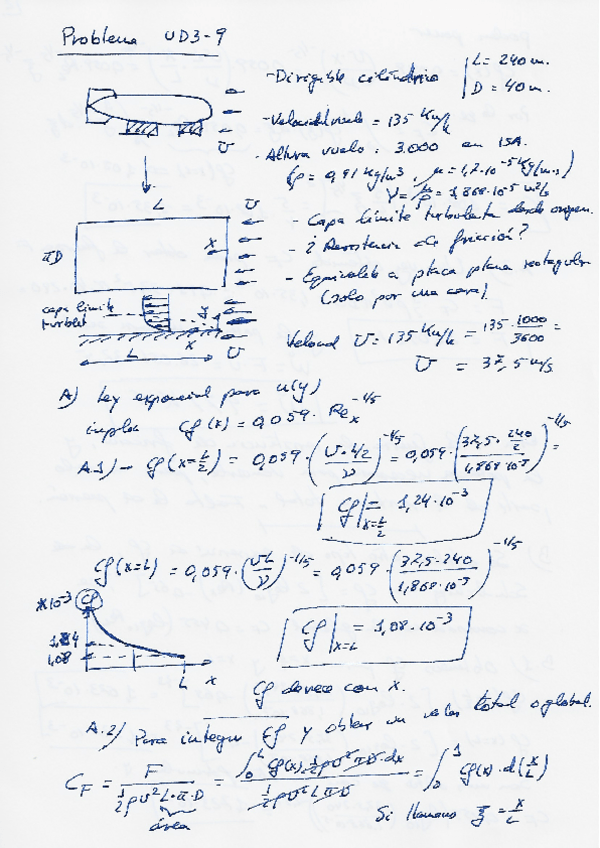 Problema UD3-9
- Dirigible cilíndrico | L = 240 m.
D = 40 m.
- Velocidad vuelo = 135 Km/h
- Altura vuelo = 3.000 en ISA.
ρ = 0,91 Kg/m³, μ = 1,7·10⁻⁵ Kg/(m·s)
ν = μ/ρ = 1,868·10⁻⁵ m²/s
- Capa límite turbulenta desde origen.
- ¿Resistencia de fricción?
- Equivale a placa plana rectangular
(solo por una cara)
U
L
U
πD
X
capa límite
turbul.
L
X
U
Velocid U = 135 Km/h = 135·1000/3600 =
U = 37,5 m/s
A) Ley exponencial para u(y)
implica Cf(x) = 0,059·Reₓ^(-1/5)
A.1) - Cf(x=L/2) = 0,059·(U·L/2/ν)^(-1/5) = 0,059·(37,5·240/2/1,868·10⁻⁵)^(-1/5) =
Cf|x=L/2 = 1,24·10⁻³
Cf(x=L) = 0,059·(UL/ν)^(-1/5) = 0,059·(37,5·240/1,868·10⁻⁵)^(-1/5)
Cf|x=L = 1,08·10⁻³
*10⁻³ Cf
1,24
1,08
L x
Cf decrece con x.
A.2) Para integrar Cf y obtener un valor total o global.
C_F = F/(½ρU²L·π·D) = ∫₀ᴸ Cf(x)·½ρU²πD·dx/(½ρU²LπD) = ∫₀¹ Cf(x)·d(x/L)
área
Si llamamos ξ = x/L